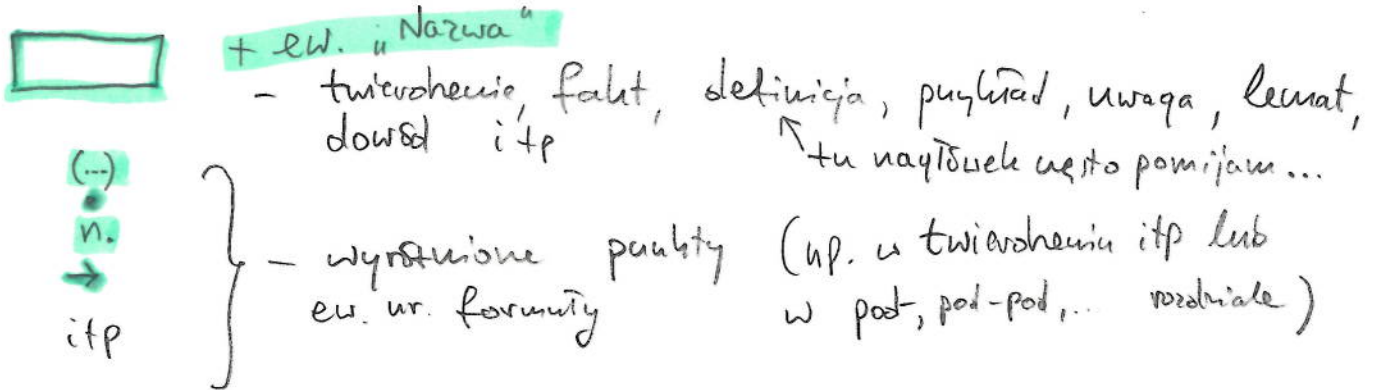 + ew. „Nazwa"
- twierdzenie, fakt, definicja, przykład, uwaga, lemat,
dowód itp
tu nagłówek często pomijam...
(...)
•
n.
→
itp
- wyróżnione punkty (np. w twierdzeniu itp lub
ew. nr. formuły w pod-, pod-pod,... rozdziale)